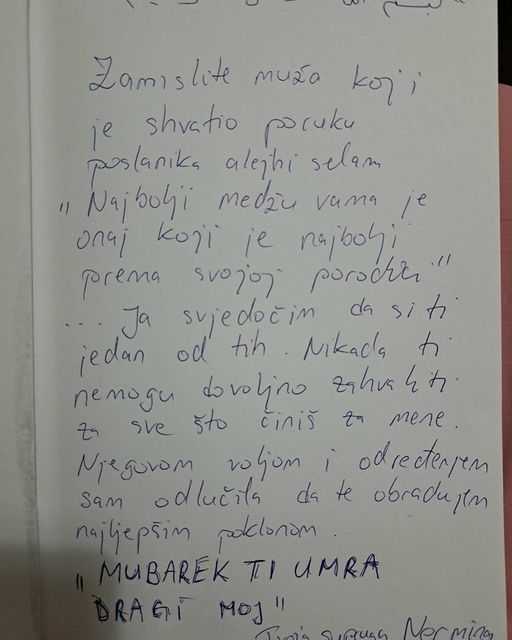 Zamislite muža koji
je shvatio poruku
poslanika alejhi selam
"Najbolji medžu vama je
onaj koji je najbolji
prema svojoj porodici"
... Ja svjedočim da si ti
jedan od tih. Nikada ti
nemogu dovoljno zahvaliti
za sve što činiš za mene.
Njegovom voljom i određenjem
sam odlučila da te obradujem
najljepšim poklonom.
"MUBAREK TI UMRA
DRAGI MOJ"
Tvoja supruga Normina